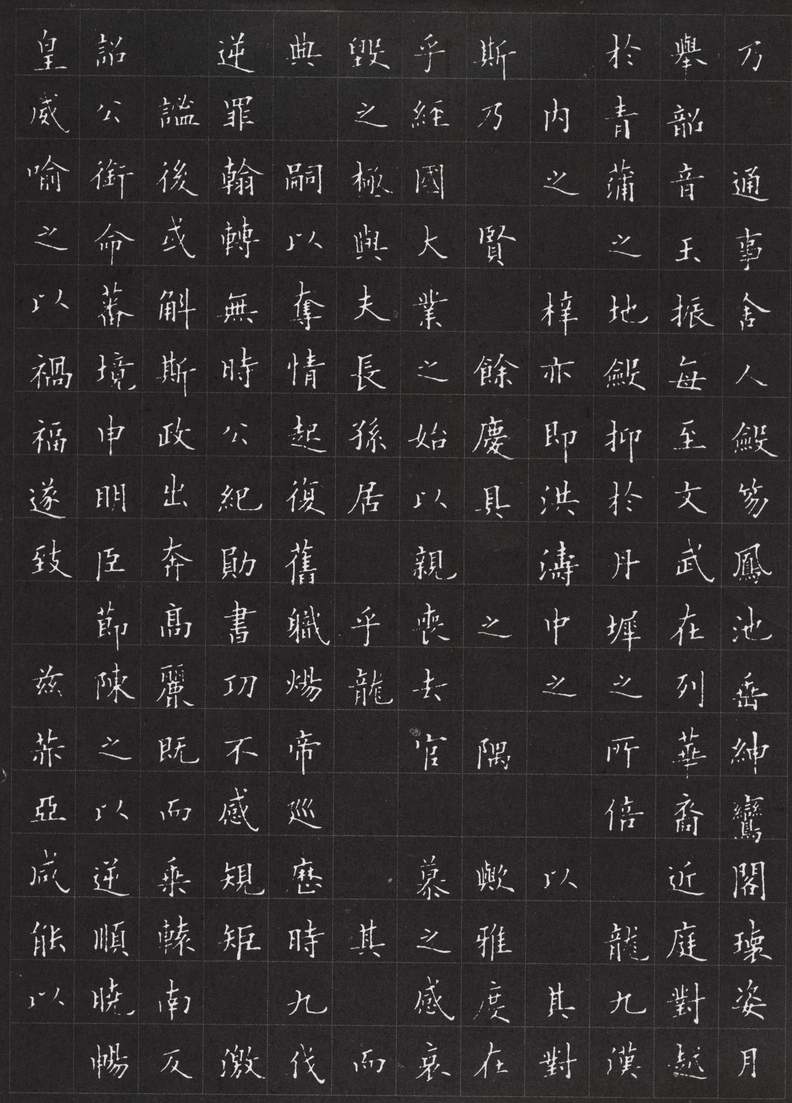 乃通事舍人斂笏鳳池垂紳鸞閣瓌姿月
舉韶音玉振每至文武在列華裔近庭對越
於青蒲之地斂抑於丹墀之所倍龍九漢
內之梓亦即洪濤中之以其對
斯乃賢餘慶具之隅雅度在
乎經國大業之始以親喪去官慕之感哀
毀之極與夫長孫居乎龍其而
典嗣以奪情起復舊職煬帝巡歷時九伐
逆罪翰轉無時公紀勛書功不感規矩激
謐後戎斛斯政出奔高麗既而乘轅南反
詔公銜命蕃境申明臣節陳之以逆順曉暢
皇威喻之以禍福遂致茲亞咸能以